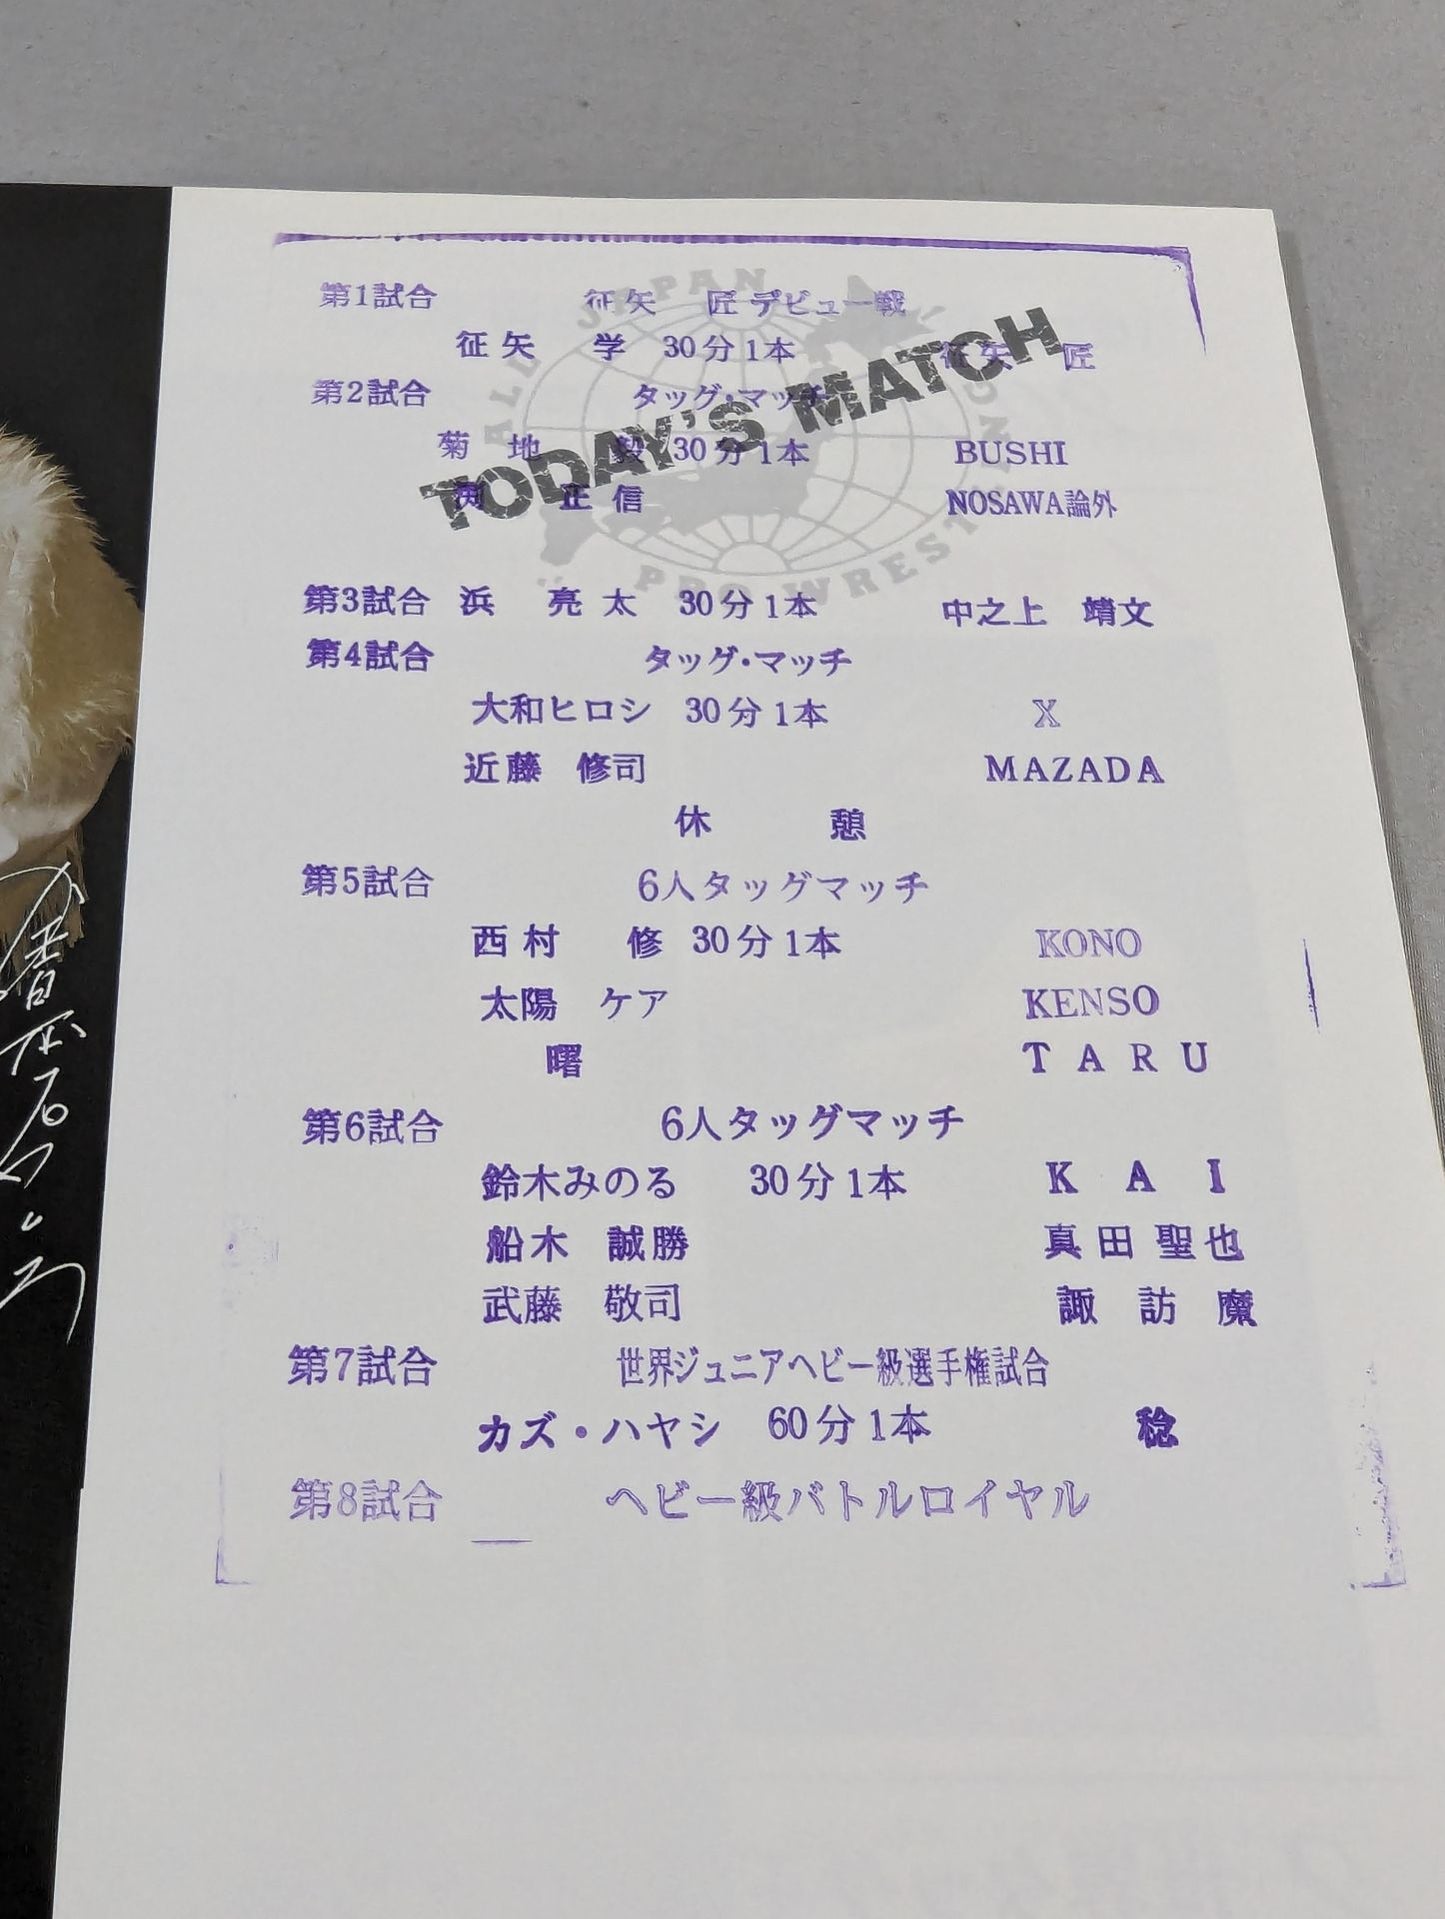 ALL JAPAN PRO WRESTLING
TODAY'S MATCH
第1試合 征矢 匠 デビュー戦
征矢 学 30分1本 征矢 匠
第2試合 タッグ・マッチ
菊地 毅 30分1本 BUSHI
渕 正信 NOSAWA論外
第3試合 浜 亮太 30分1本 中之上 靖文
第4試合 タッグ・マッチ
大和ヒロシ 30分1本 X
近藤 修司 MAZADA
休 憩
第5試合 6人タッグマッチ
西村 修 30分1本 KONO
太陽 ケア KENSO
曙 TARU
第6試合 6人タッグマッチ
鈴木みのる 30分1本 KAI
船木 誠勝 真田聖也
武藤 敬司 諏訪魔
第7試合 世界ジュニアヘビー級選手権試合
カズ・ハヤシ 60分1本 稔
第8試合 ヘビー級バトルロイヤル